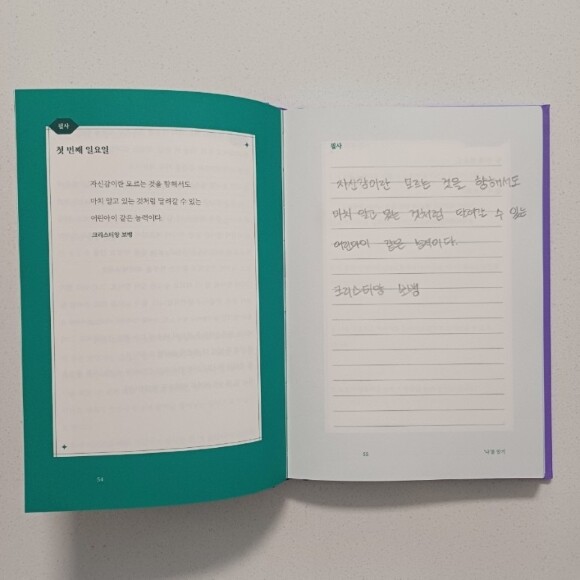 필사
첫 번째 일요일
자신감이란 모르는 것을 향해서도
마치 알고 있는 것처럼 달려갈 수 있는
어린아이 같은 능력이다.
크리스티앙 보뱅
54
필사
자신감이란 모르는 것을 향해서도
마치 알고 있는 것처럼 달려갈 수 있는
어린아이 같은 능력이다.
크리스티앙 보뱅
55